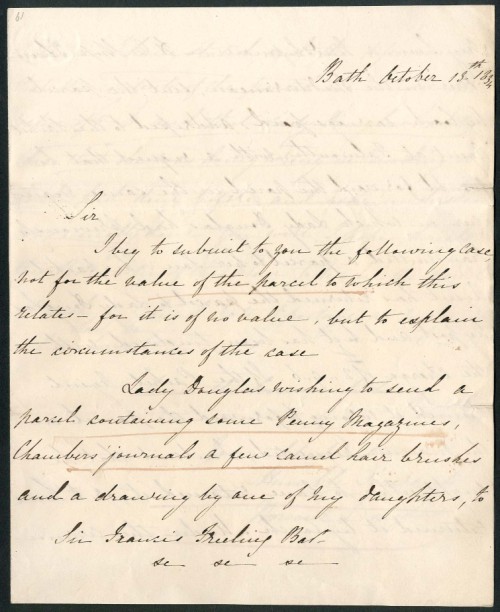 61
Bath October 13th 183
Sir
I beg to submit to you the following case
not for the value of the parcel to which this
relates – for it is of no value, but to explain
the circumstances of the case
Lady Douglas wishing to send a
parcel containing some Penny Magazines,
Chambers journals a few camel hair brushes
and a drawing by one of my daughters, to
Sir Francis Freeling Bart
&c &c &c